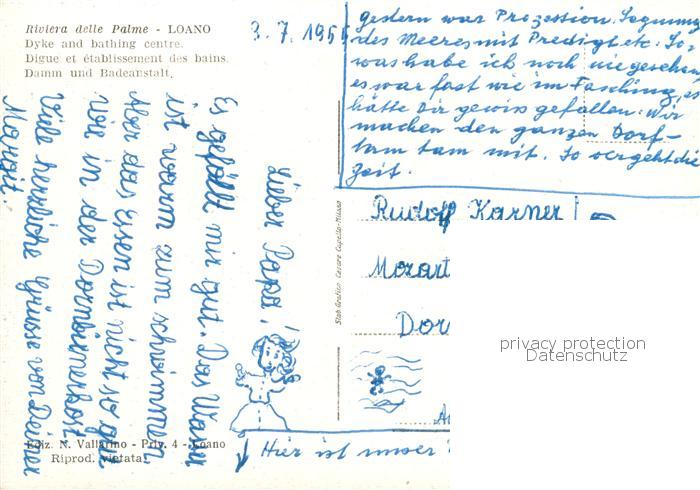 Riviera delle Palme - LOANO
Dyke and bathing centre.
Digue et établissement des bains.
Damm und Badeanstalt.
3.7.195
Lieber Papa!
Es gefällt mir gut. Das Wasser
ist warm zum schwimmen.
Aber das Essen ist nicht so gut
wie in der Dornbirnerkost
Viele herzliche Grüsse von Deiner
Margit.
gestern war Prozession. Segnung
des Meeres mit Predigt etc. So
was habe ich noch nie gesehen
es war fast wie im Fasching, es
hätte Dir gewiss gefallen. Wir
machen den ganzen Dorf-
tam tam mit. So vergeht die
Zeit.
Rudolf Karner
Mozart
Dor
privacy protection
Datenschutz
Stab. Grafico Cesare Capello-Milano
Hier ist unser
Ediz. N. Vallarino - Priv. 4 - Loano
Riprod. vietata